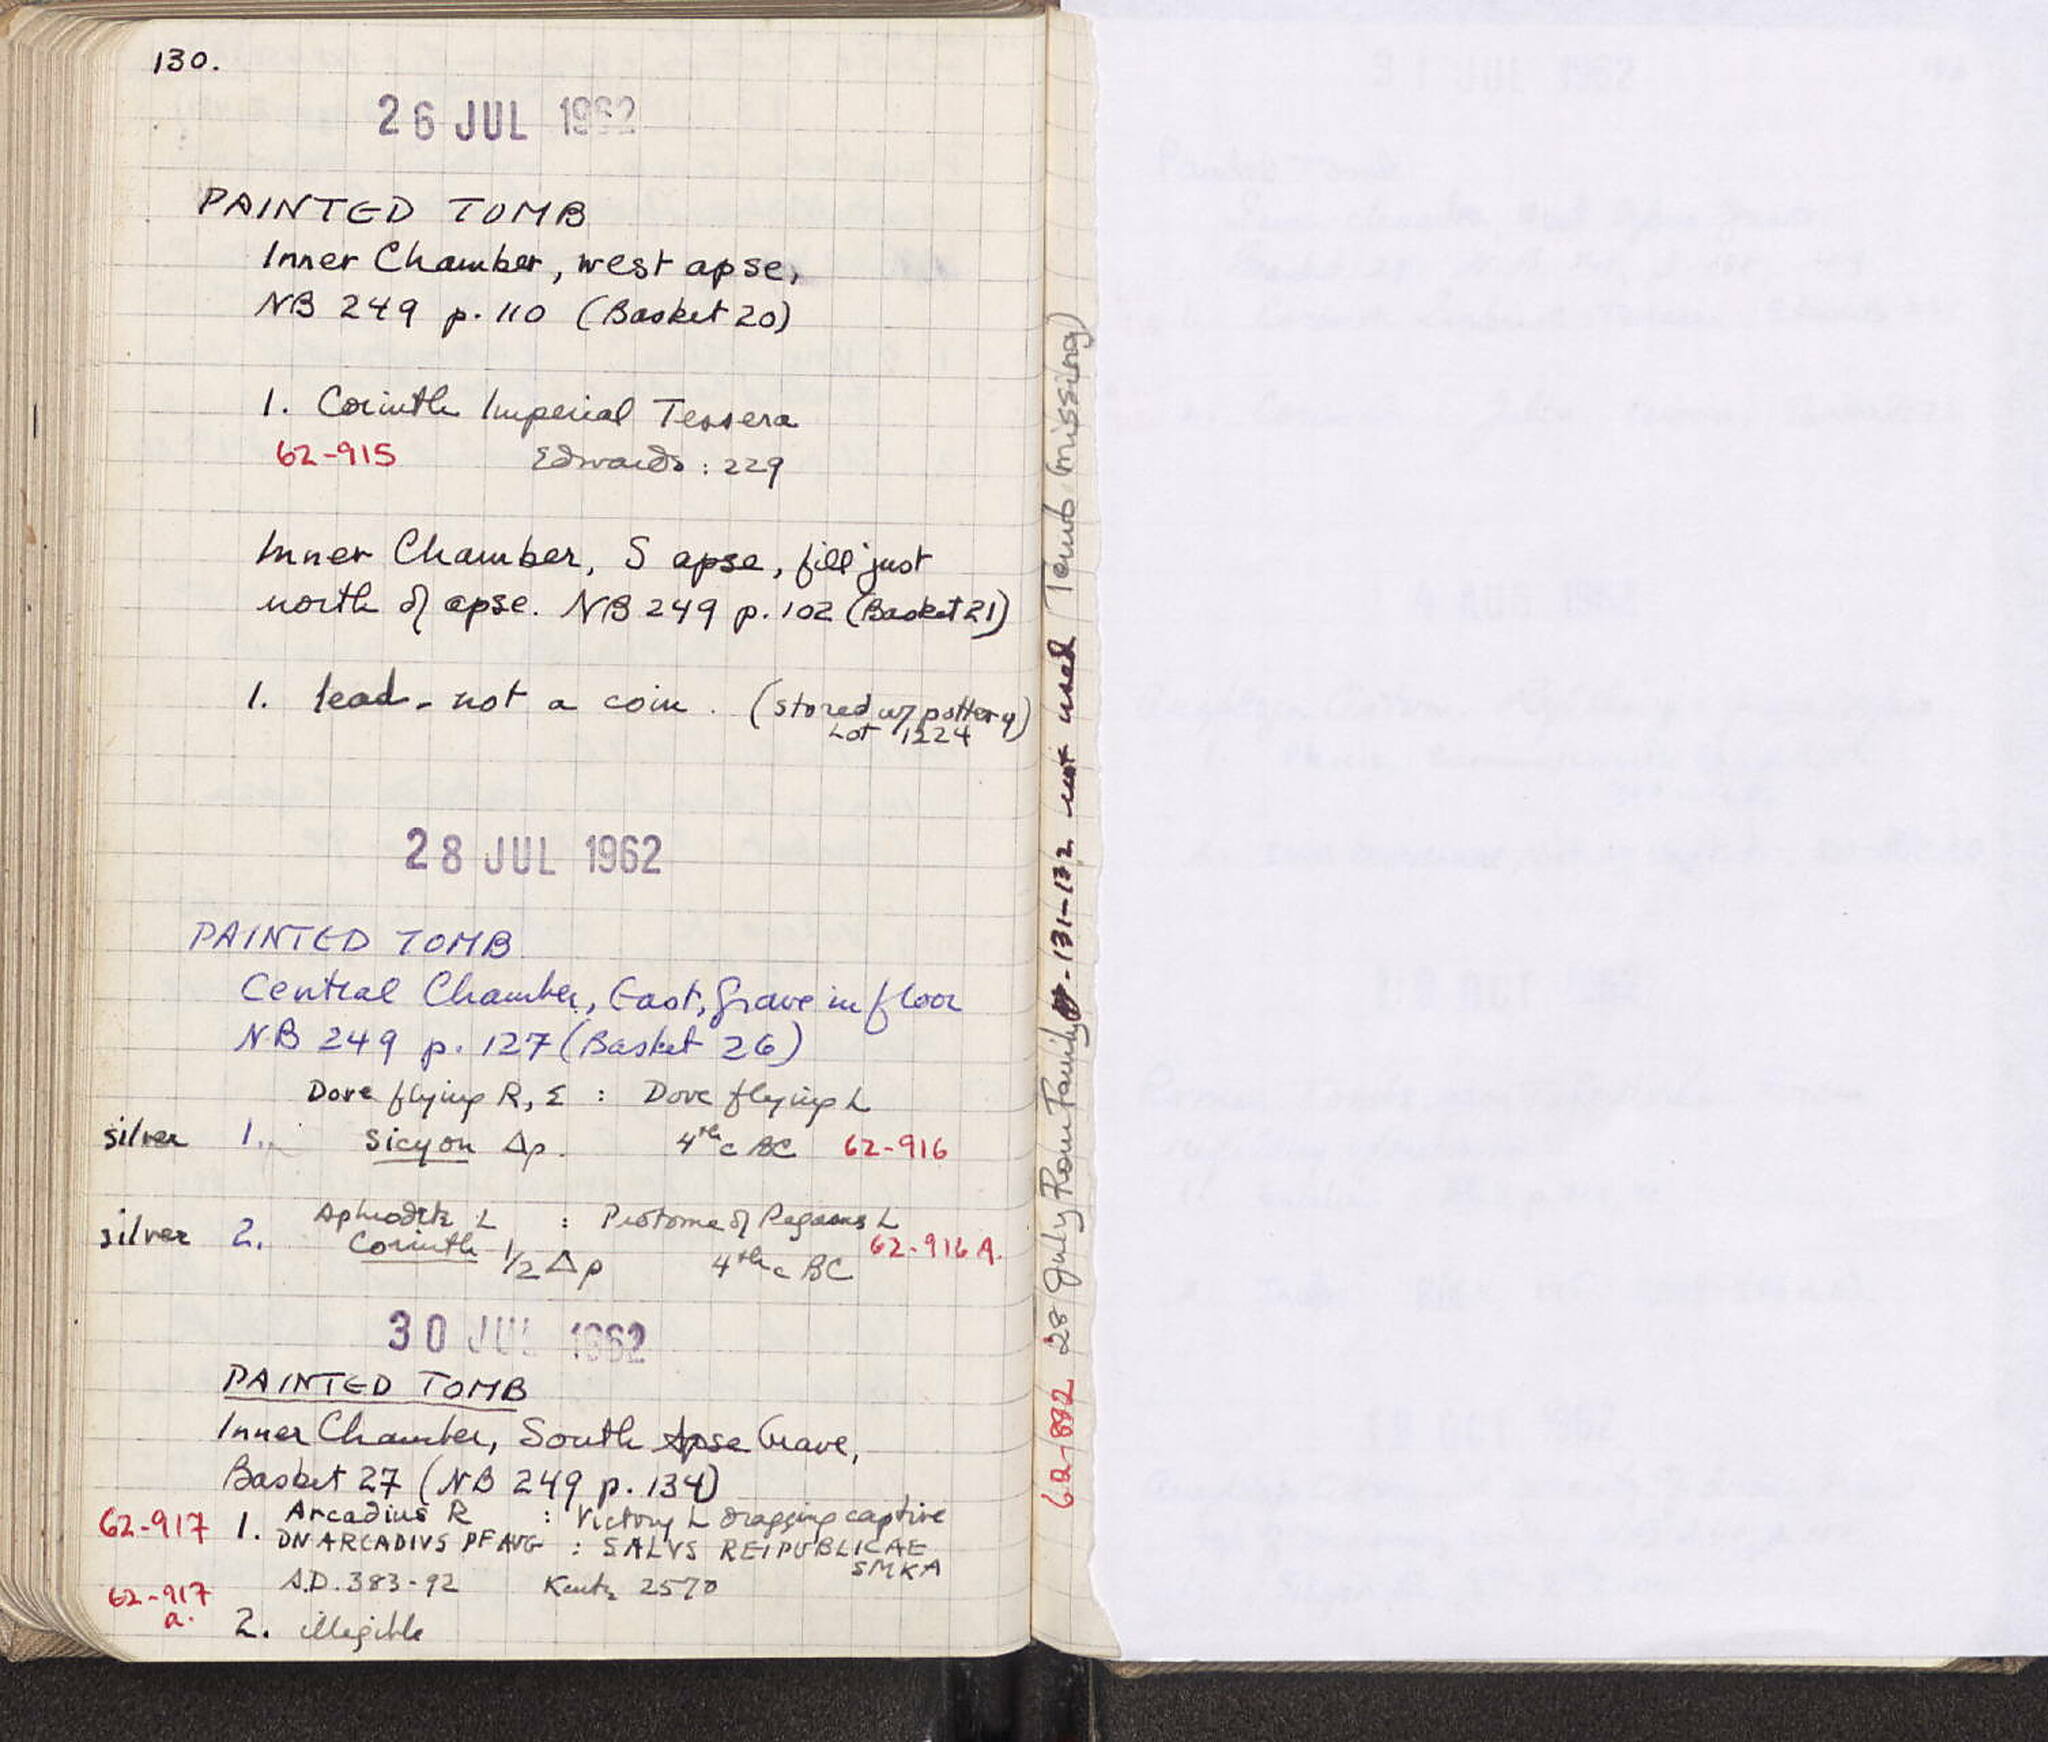 130.
26 JUL 1962
PAINTED TOMB
Inner Chamber, west apse,
NB 249 p. 110 (Basket 20)
1. Corinth Imperial Tessera
62-915 Edwards: 229
Inner Chamber, S apse, fill just
north of apse. NB 249 p. 102 (Basket 21)
1. lead - not a coin. (stored w/ pottery)
Lot 1224
28 JUL 1962
PAINTED TOMB
Central Chamber, East, Grave in floor
NB 249 p. 127 (Basket 26)
Dove flying R, Σ : Dove flying L
silver 1. Sicyon Δρ. 4th c BC 62-916
Aphrodite L : Protome of Pegasus L
silver 2. Corinth 1/2 Δρ 4th c BC 62-916 A.
30 JUL 1962
PAINTED TOMB
Inner Chamber, South Apse Grave,
Basket 27 (NB 249 p. 134)
62-917 1. Arcadius R : Victory L dragging captive
DN ARCADIVS PF AVG : SALVS REIPUBLICAE
SMKA
A.D. 383-92 2570
62-917
a. 2. illegible
62-892 28 July Family 131-132 not used Tomb (missing)